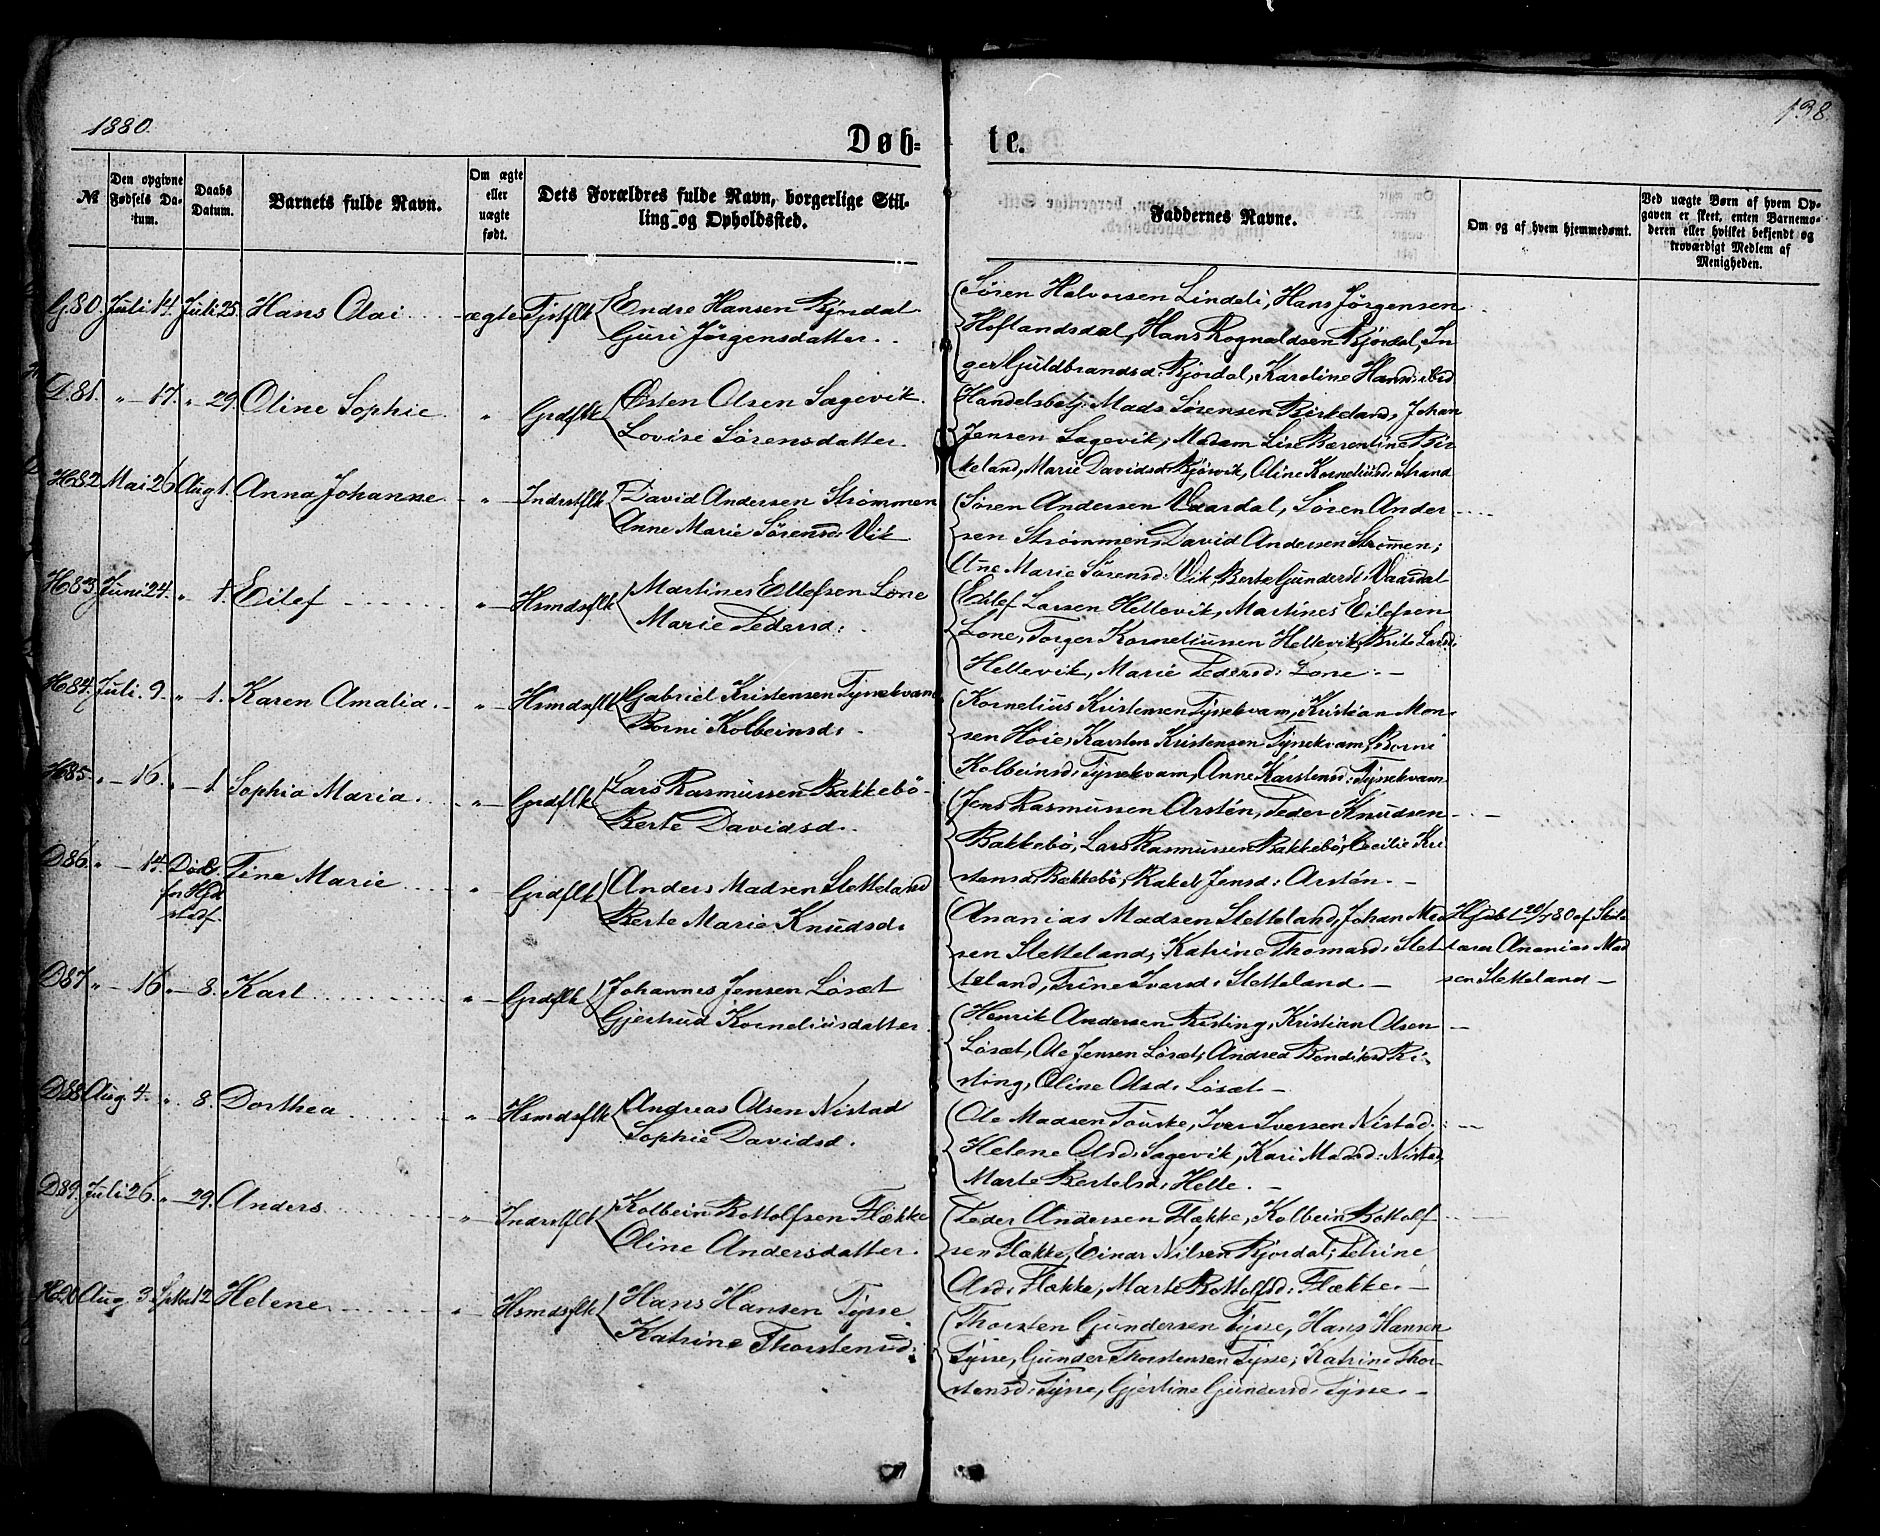 1880.
138.
Døb=
te.
№
Den opgivne Fødsels Datum.
Daabs Datum.
Barnets fulde Navn.
Om ægte eller uægte født.
Dets Forældres fulde Navn, borgerlige Stilling og Opholdssted.
Faddernes Navne.
Om og af hvem hjemmedømt.
Ved uægte Børn af hvem Opgaven er skeet, enten Barnemoderen eller hvilket bekjendt og troværdigt Medlem af Menigheden.
G80. Juli 14. Juli 25. Hans Olai ægte Tjstflk Endre Hansen Bjordal
Guri Jørgensdatter.
Søren Halvorsen Lindeli, Hans Jørgensen
Hoflandsdal, Hans Rognaldsen Bjordal, In
ger Guldbrandsd: Bjordal, Karoline
D81. " - 17. " 29. Oline Sophie " Grdflk Østen Olsen Sagevik.
Lovise Sørensdatter.
Handelsbetj: Mads Sørensen Birkeland, Johan
Jensen Sagevik, Madam Lise Berentine Bir
keland, Marie Davidsd: Bjørvik, Oline Korneliusd: Strand
H82 Mai 26 Aug 1. Anna Johanne " Indrstflk David Andersen Strømmen
Anne Marie Sørensd: Vik
Søren Andersen Vaardal, Søren Ander
sen Strømmen, David Andersen Strømen;
Ane Marie Sørensd: Vik Berte Gundersd: Vaardal
H83. Juni 24. " 1. Eilef " Hsmdsflk Martines Ellefsen Lone
Marie Pedersd:
Eilef Larsen Hellevik, Martines Eilefsen
Lone, Torger Korneliussen Hellevik, Brite Larsd:
Hellevik, Marie Pedersd: Lone. -
H84. Juli. 9. " 1. Karen Amalia. " Hsmdsflk Gabriel Kristensen Tyssekvam
Borni Kolbeinsd:
Kornelius Kristensen Tyssekvam, Kristian Mon
sen Høie, Karsten Kristensen Tyssekvam, Borni
Kolbeinsd: Tyssekvam, Anne Karstensd: Tyssekvam
H85. " - 16. " - 1. Sophia Maria. " Grdflk Lars Rasmussen Bakkebö
Berte Davidsd.
Jens Rasmussen Arstén, Peder Knudsen
Bakkebö, Lars Rasmussen Bakkebö, Cecilie Kri
stensd: Bakkebö, Rakel Jensd: Arstén. -
D86. " - 14. Död
Tine Marie " Grdflk Anders Madsen Sletteland
Berte Marie Knudsd:
Ananias Madsen Sletteland, Johan Mad
sen Sletteland, Katrine Thomasd: Slet
teland, Trine Iversd: Sletteland. -
Hjdbt 20/7 80 af Skole
lærer Ananias Mad
sen Sletteland -
D87 " - 16 " 8. Karl " Grdflk Johannes Jensen Løsæt
Gjertrud Korneliusdatter.
Henrik Andersen Risting, Kristian Olsen
Løsæt, Ole Jensen Løsæt, Andrea Bendiksd: Ri
sting, Oline Olsd: Løsæt. -
D88. Aug. 4. " 8. Dorthea " Hsmdsflk Andreas Olsen Nistad
Sophie Davidsd.
Ole Madsen Iver Iversen Nistad,
Helene Olsd: Sagevik, Kari Madsd: Nistad,
Marte Bertelsd: Helle. -
D89. Juli 26. " - 29. Anders " Indrstflk Kolbein Bottolfsen Flække
Oline Andersdatter.
Peder Andersen Flække, Kolbein Bottolf
sen Flække, Einar Nilsen Bjordal, Petrine
Olsd: Flække, Marte Bottolfsd: Flække. -
H90 Aug. 3. Septbr 12 Helene " Hsmdsflk Hans Hansen Tysse
Katrine Thorstensd:
Thorsten Gundersen Tysse, Hans Hansen
Tysse, Gunder Thorstensen Tysse, Katrine Thor
stensd: Tysse, Gjertine Gundersd: Tysse. -